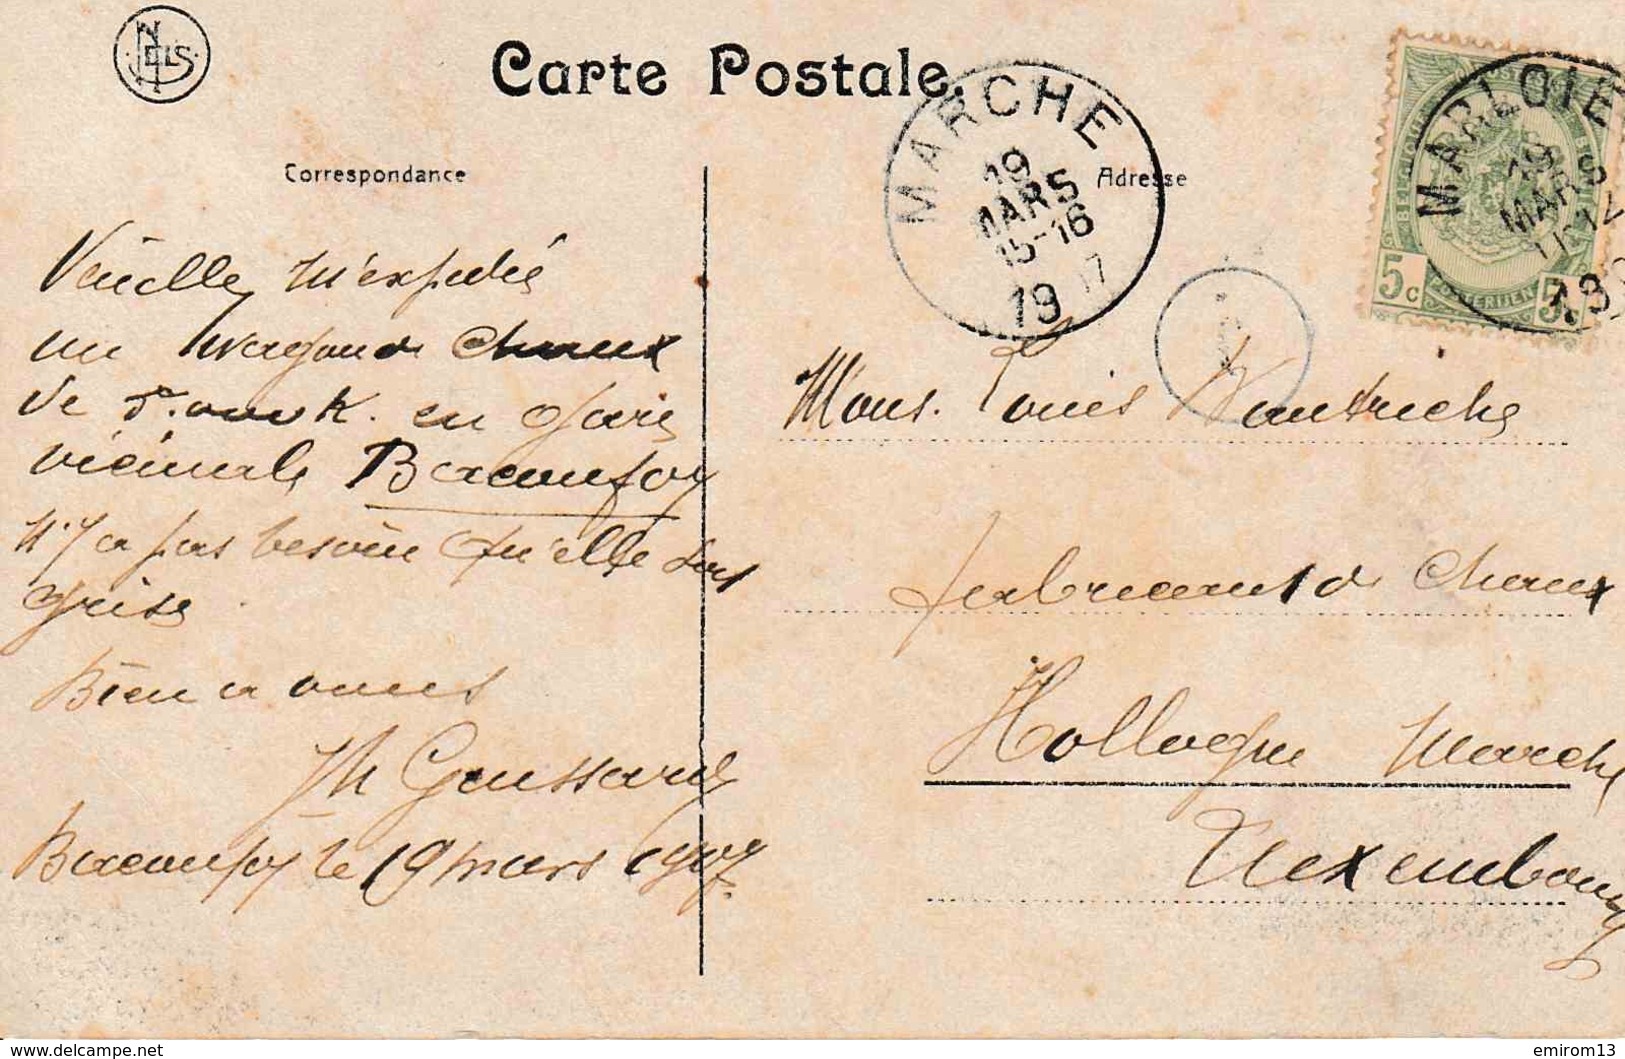 NELS
Carte Postale.
MARCHE
19
MARS
15-16
19
MARLOIE
19
MARS
5c
POSTERIJEN
5
Correspondance
Adresse
Veuillez m'expédié
un wagon de Chaux
de en gare
vicinale Beaconfoy
n'y a pas besoin qu'elle soit
grise
Bien a vous
Th Goussard
Beaconfoy le 19 mars 1907.
Mons. Louis Wautriche
fabricant de Chaux
Hollogne Marche
Luxembourg
www.delcampe.net
emirom13